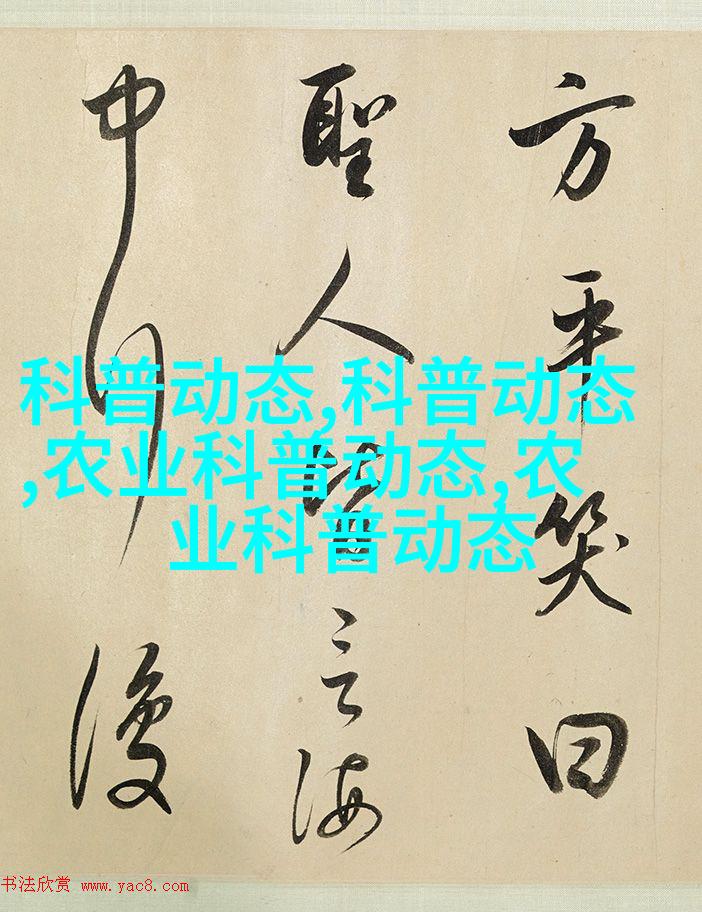 方平笑曰
聖人皆言海
中行復
科普动态,科普动态
,农业科普动态,农
业科普动态
书法欣赏 www.yac8.com